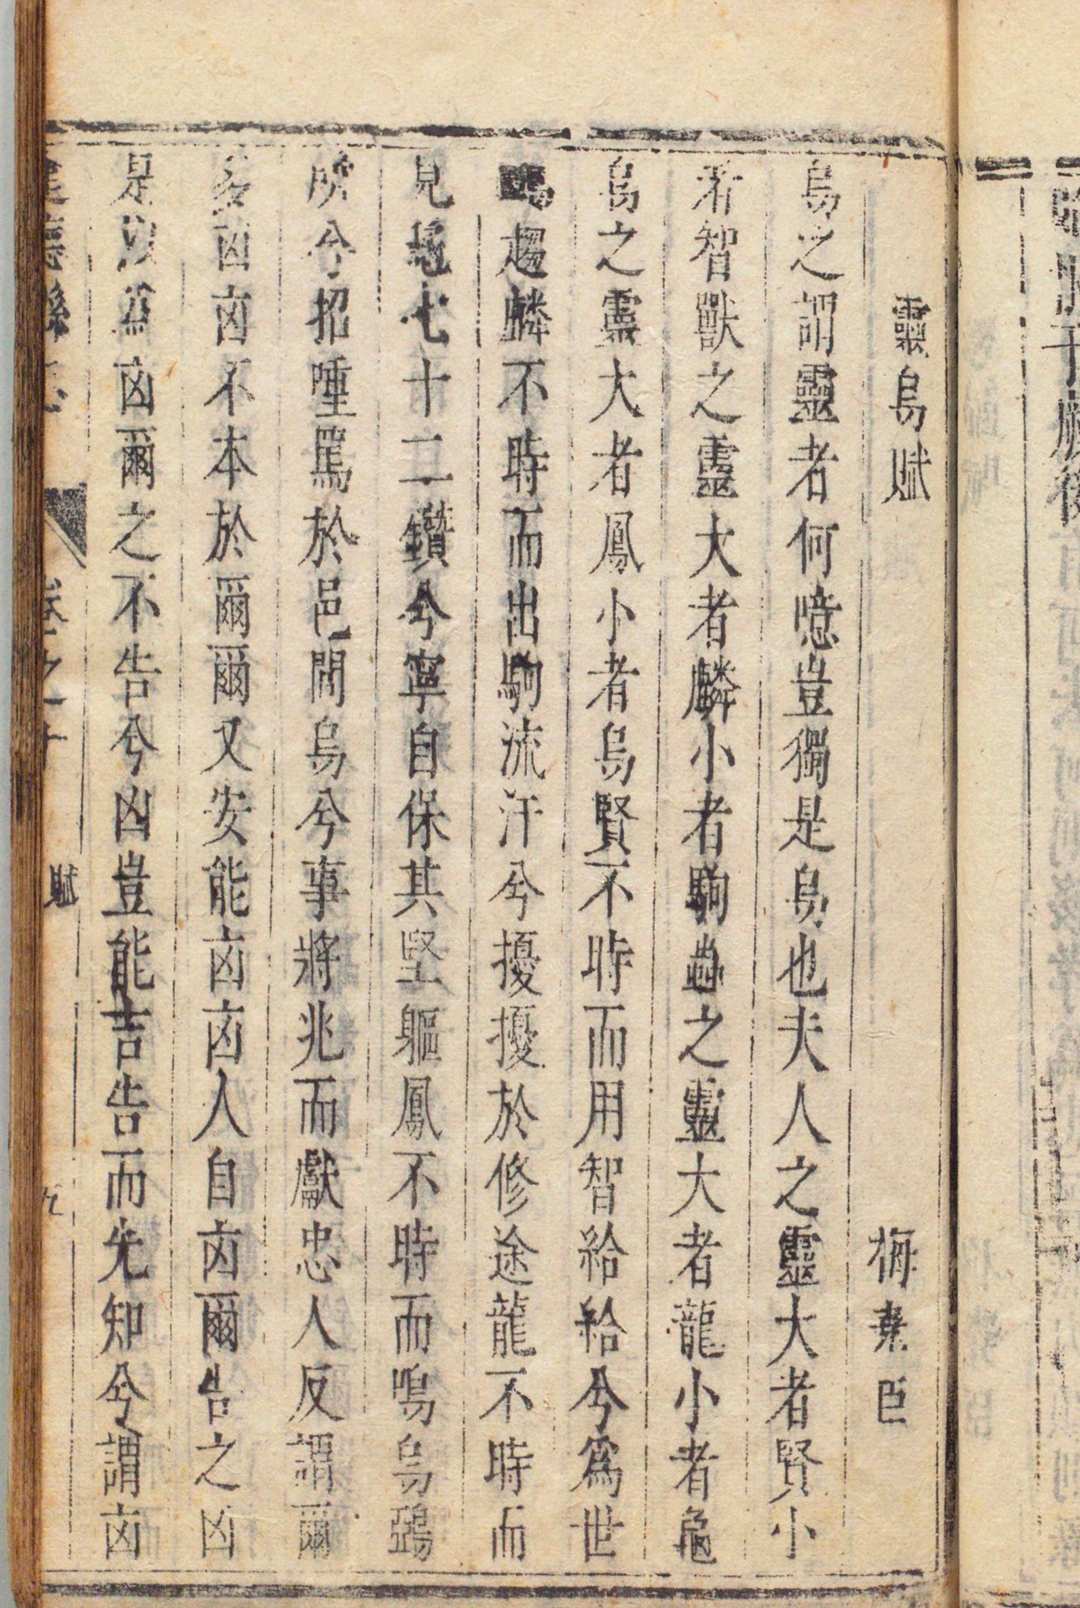 靈烏賦
梅堯臣
烏之謂靈者何噫豈獨是烏也夫人之靈大者賢小
者智獸之靈大者麟小者駒蟲之靈大者龍小者龜
烏之靈大者鳳小者烏賢不時而用智給給兮爲世
所趨麟不時而出駒流汗兮擾擾於修途龍不時而
見龜七十二鑽兮寧自保其堅軀鳳不時而鳴烏鵶
鵶兮招唾罵於邑閭烏兮事將兆而獻忠人反謂爾
多凶凶不本於爾爾又安能凶凶人自凶爾告之凶
是以爲凶爾之不告兮凶豈能吉告而先知兮謂凶
建德縣志
卷之十
賦
五